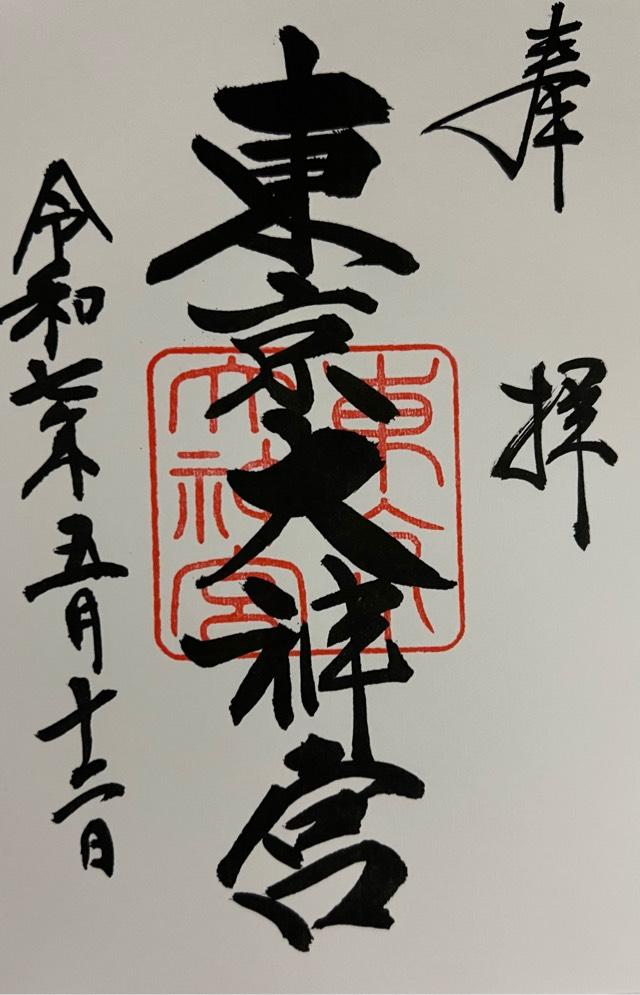 奉拝
東京大神宮
東京
大神宮
令和七年五月十二日